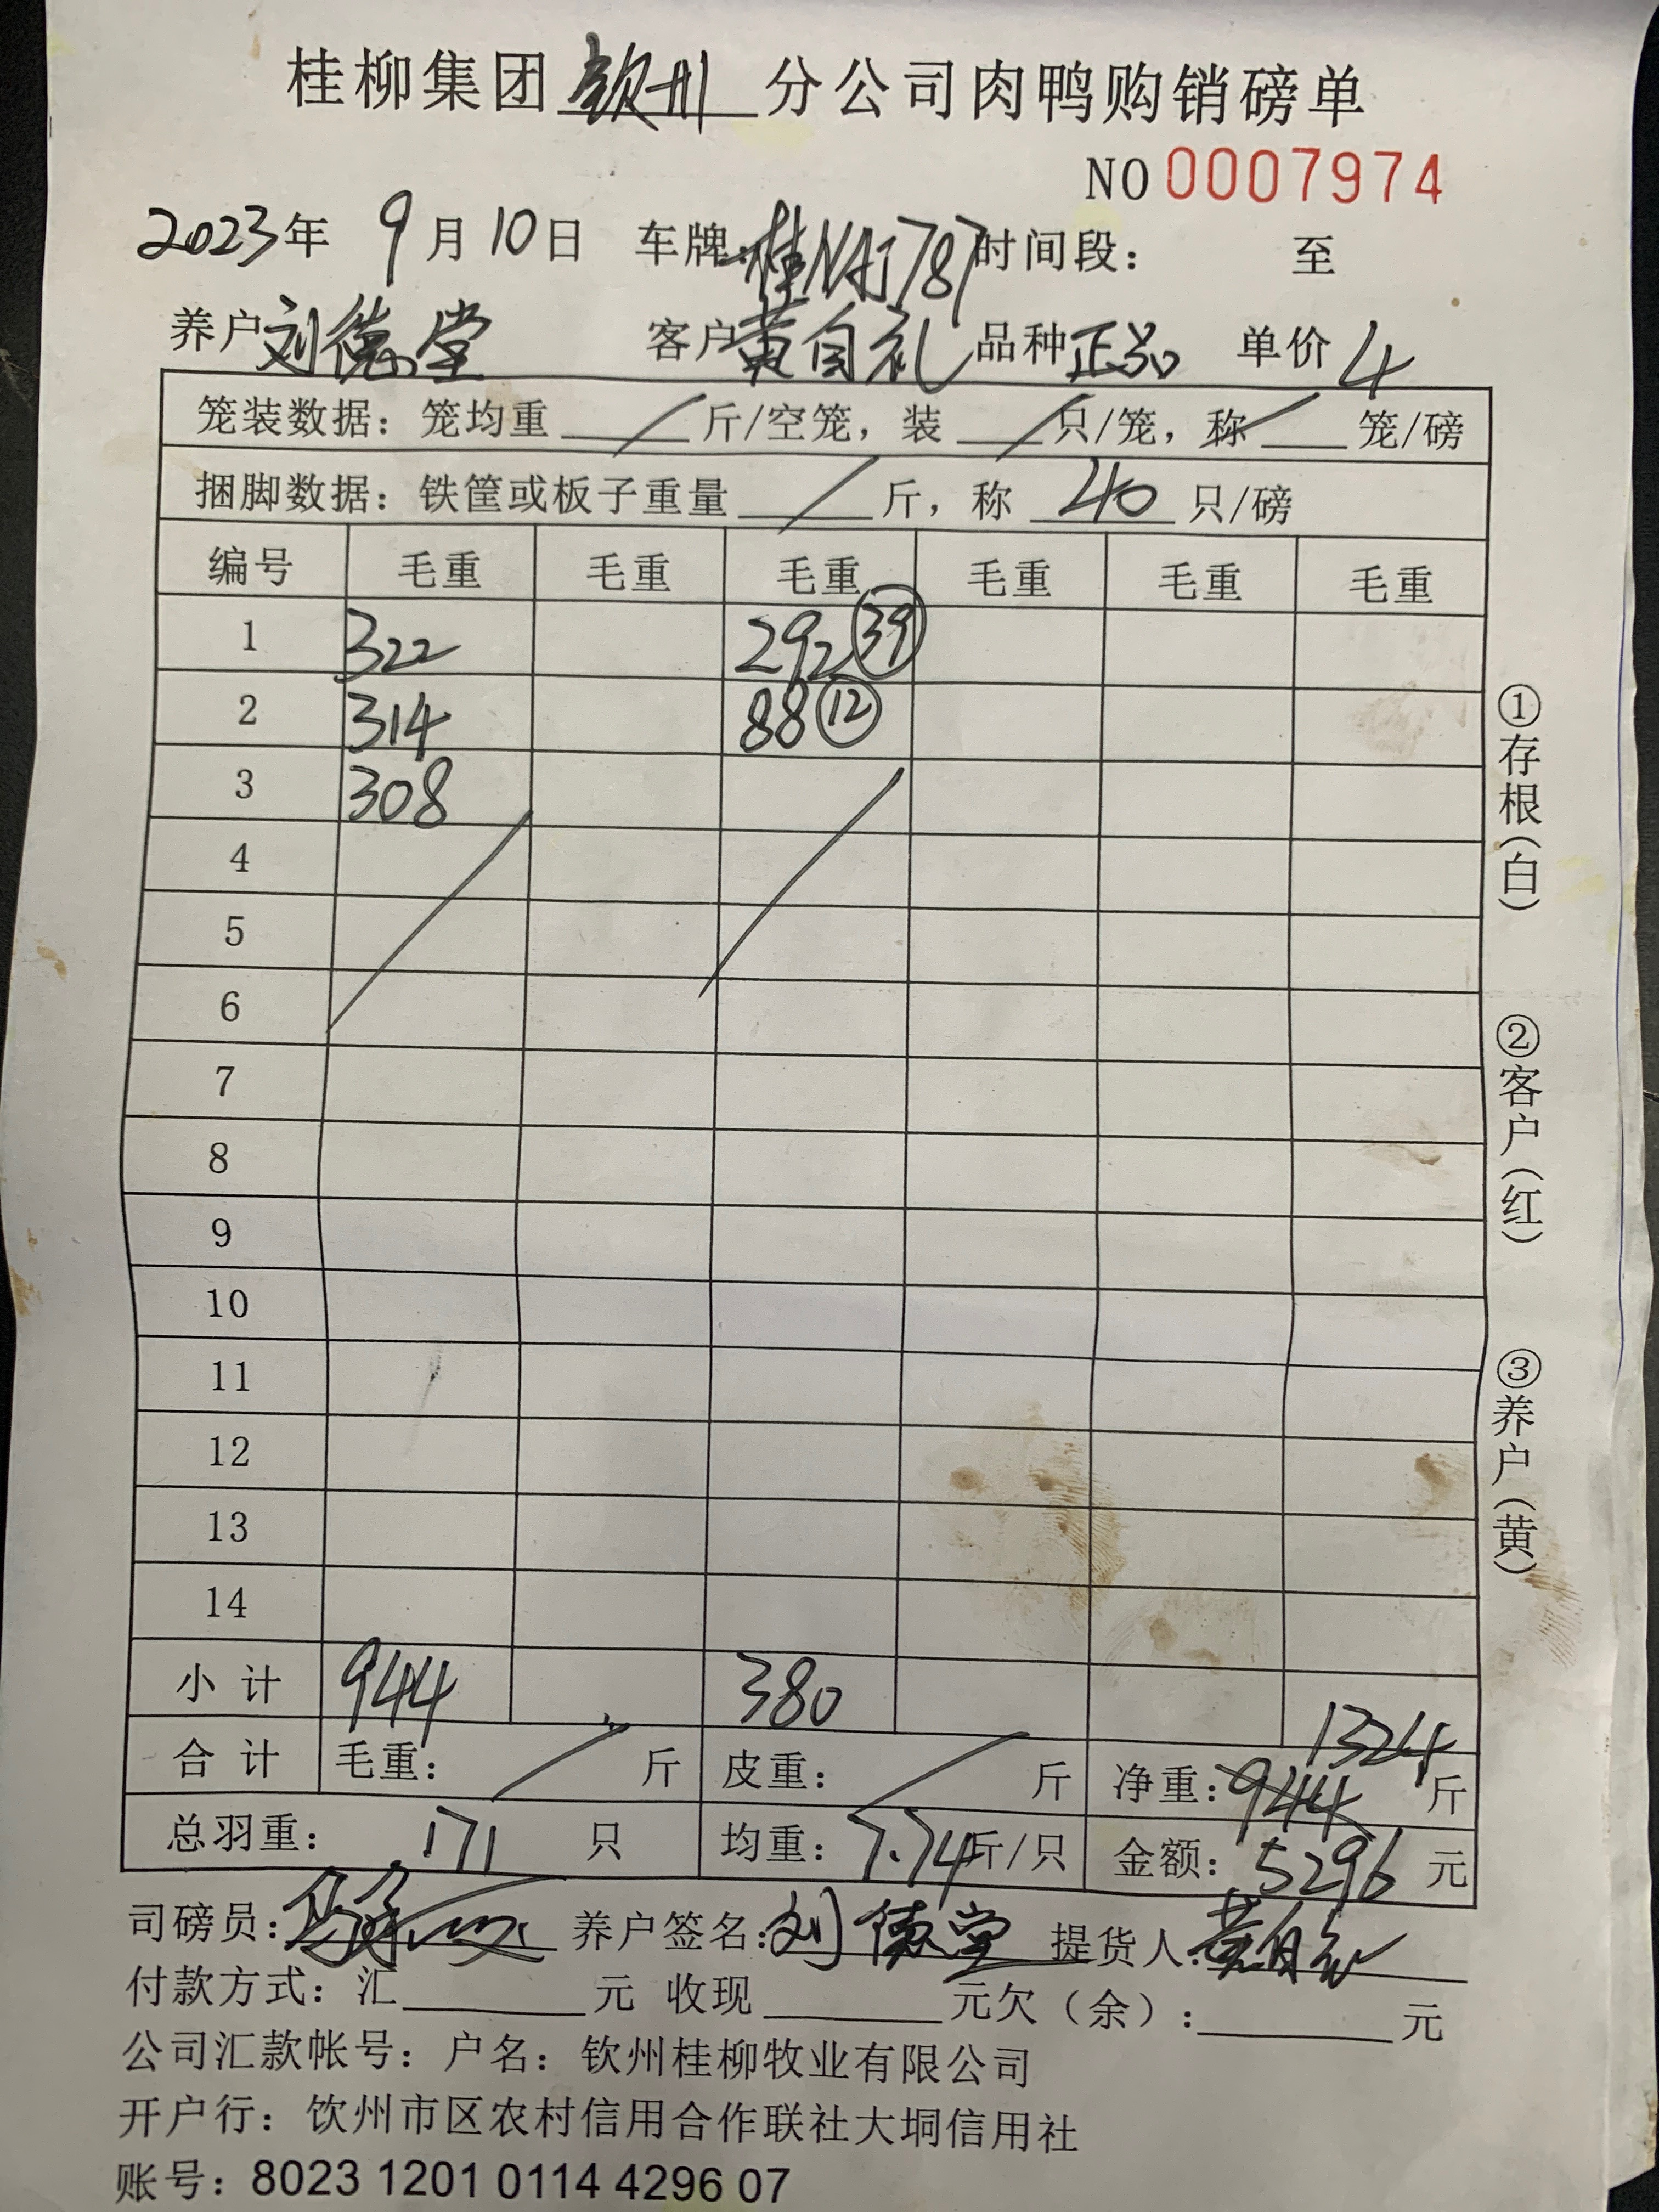 桂柳集团 钦州 分公司肉鸭购销磅单
NO 0007974
2023年 9月10日 车牌:桂NAJ787 时间段: 至
养户 刘德堂 客户 黄自礼 品种 正品 单价 4
笼装数据: 笼均重 / 斤/空笼, 装 / 只/笼, 称 / 笼/磅
捆脚数据: 铁筐或板子重量 / 斤, 称 40 只/磅
编号 毛重 毛重 毛重 毛重 毛重 毛重
1 322 292 39
2 314 88 12
3 308
4
5
6
7
8
9
10
11
12
13
14
小 计 944 380
1324
合 计 毛重: / 斤 皮重: / 斤 净重: 944 斤
总羽重: 171 只 均重: 7.74 斤/只 金额: 5296 元
司磅员: 养户签名: 刘德堂 提货人: 黄自礼
付款方式: 汇 元 收现 元欠(余): 元
公司汇款帐号: 户名: 钦州桂柳牧业有限公司
开户行: 饮州市区农村信用合作联社大垌信用社
账号: 8023 1201 0114 4296 07
①存根(白)
②客户(红)
③养户(黄)